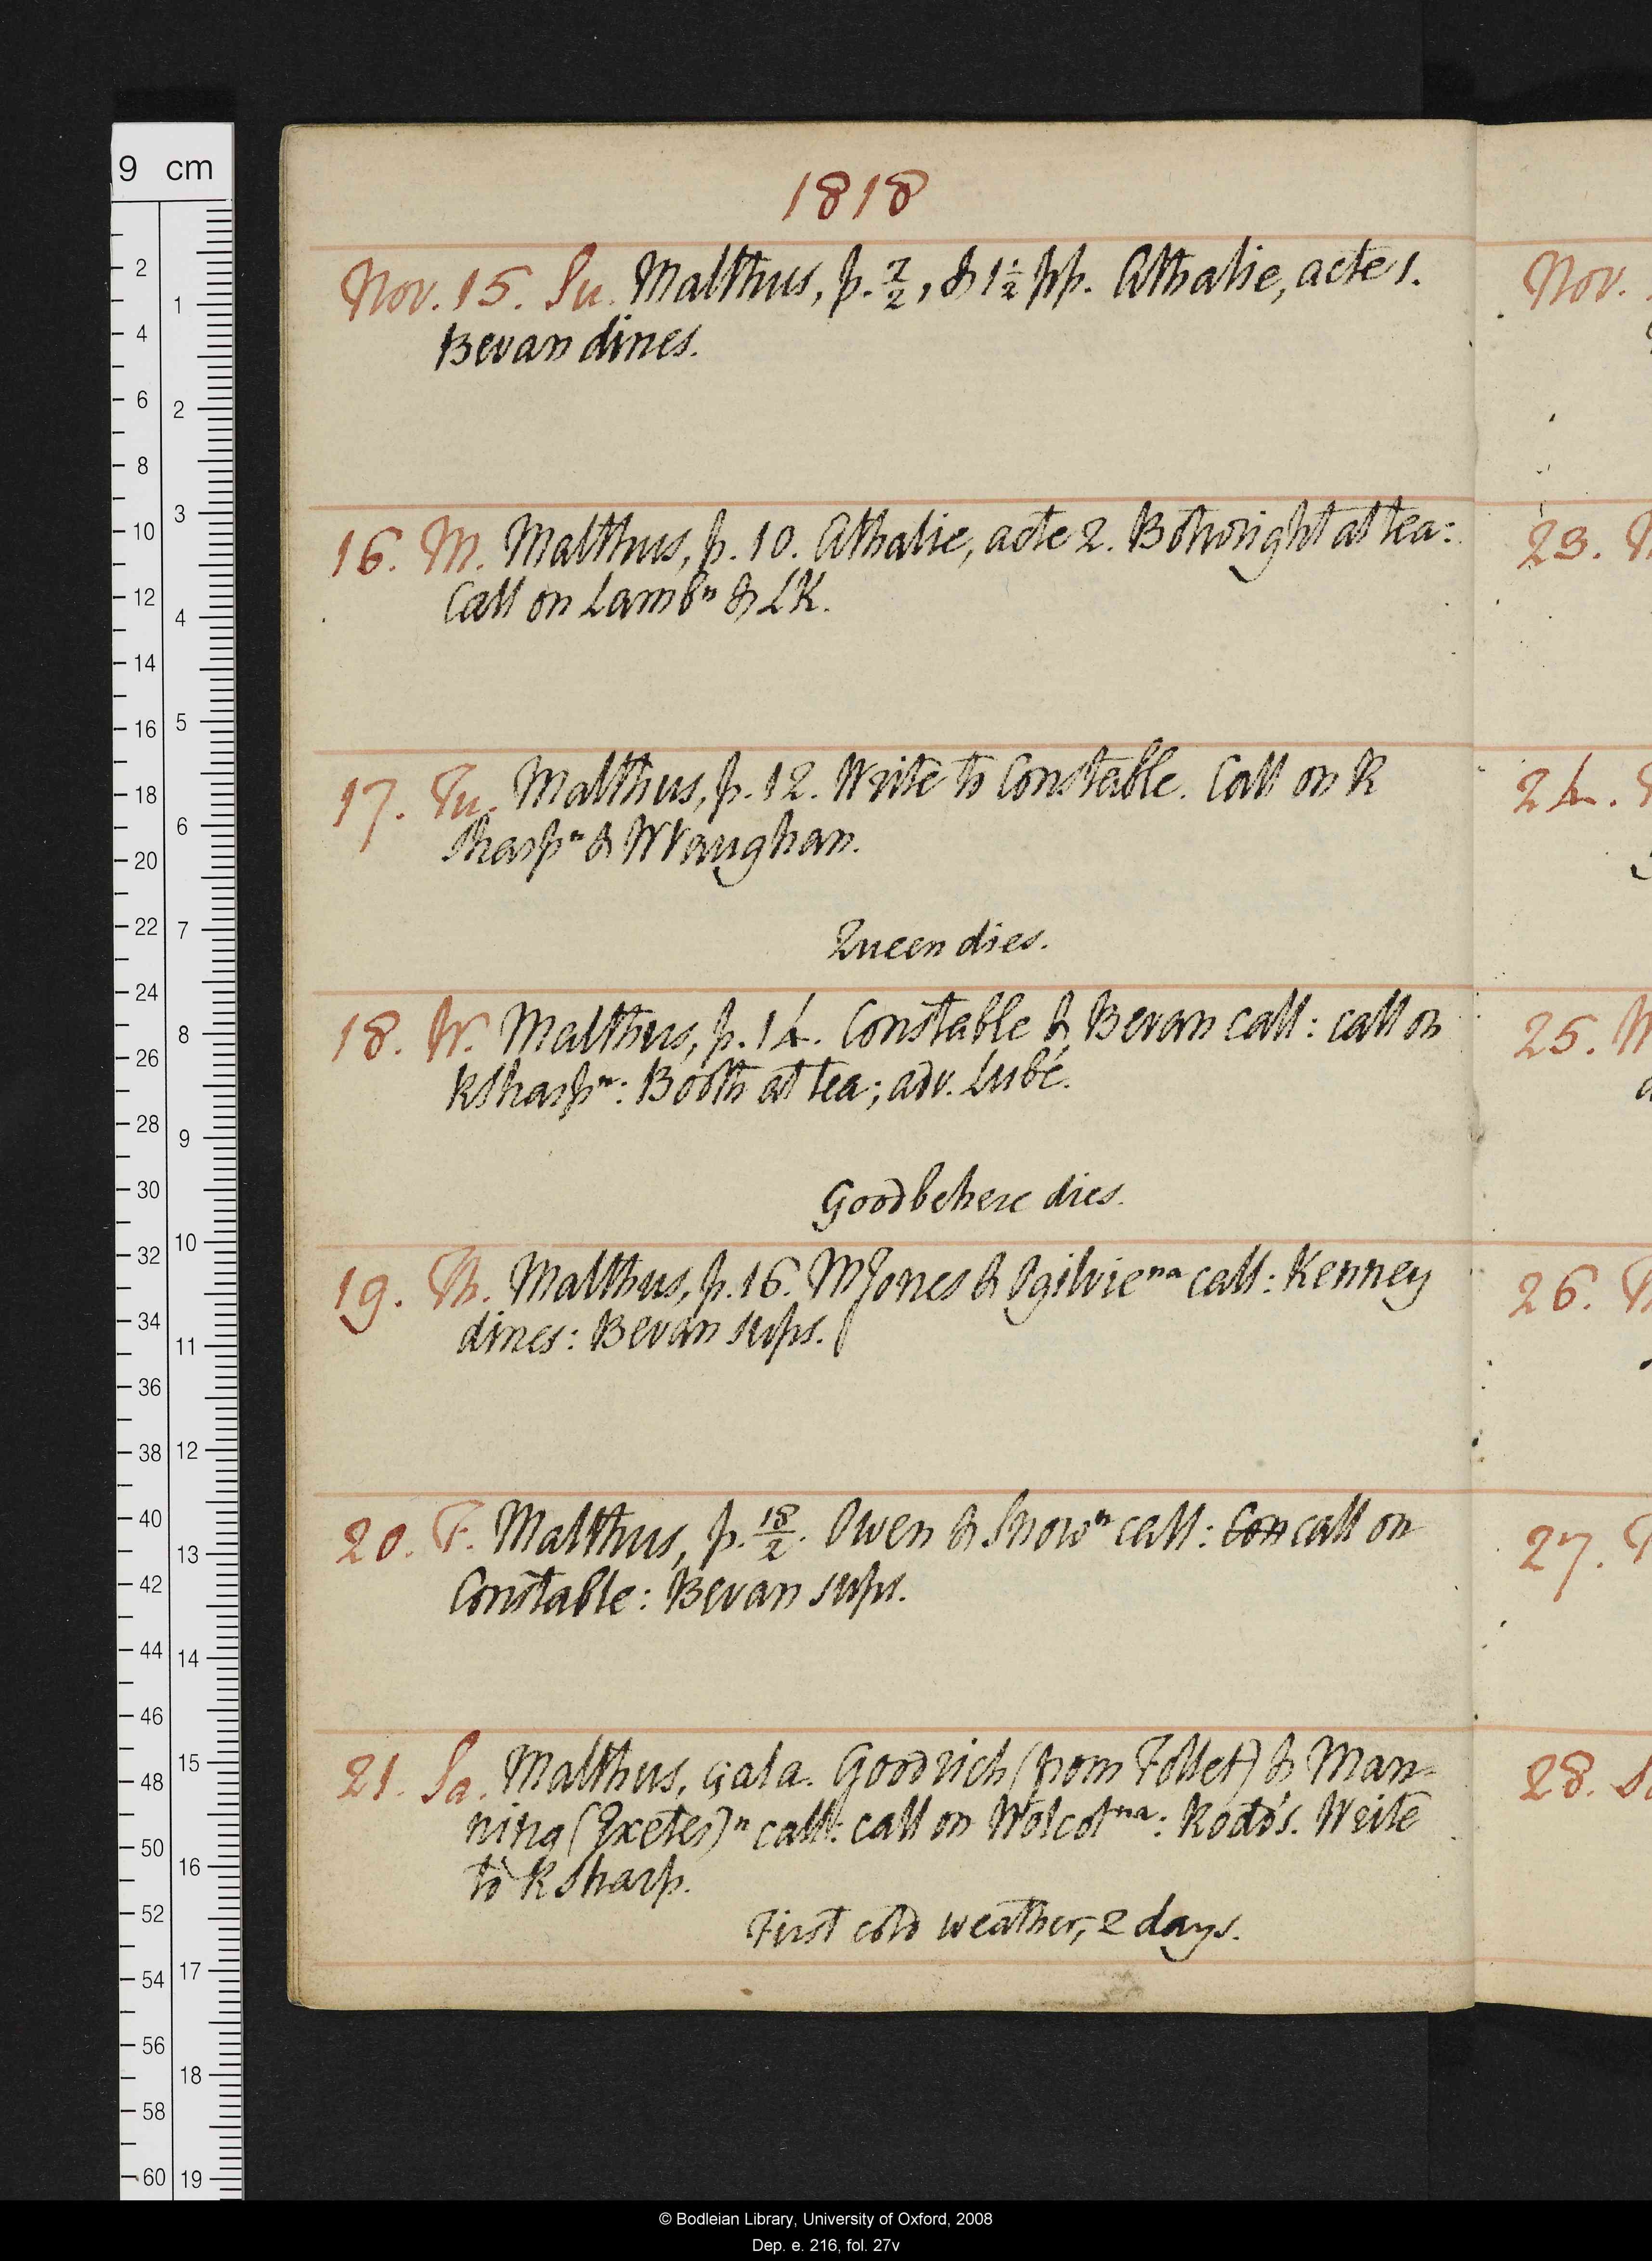 1818
Nov. 15. Su. Malthus, p. 7/2, & 1 1/2 pp. Athalie, acte 1.
Bevan dines.
16. M. Malthus, p. 10. Athalie, acte 2. Botwright at tea:
Call on Lambⁿ & LK.
17. Tu. Malthus, p. 12. Write to Constable. Call on R
Sharpⁿ & W Vaughan.
Queen dies.
18. W. Malthus, p. 14. Constable & Bevan call: call on
R Sharpⁿ: Booth at tea; adv. Lubé.
Goodbehere dies.
19. Th. Malthus, p. 16. M Jones & Ogilvieⁿᵃ call: Kenney
dines: Bevan sups.
20. F. Malthus, p. 18/2. Owen & Snowⁿ call: Con call on
Constable: Bevan sups.
21. Sa. Malthus, çala. Goodrich (from Follet) & Man-
ning (Exeter)ⁿ call: call on Wolcotⁿᵃ: Rodd's. Write
to R Sharp.
First cold weather, 2 days.
Nov.
23.
24.
25.
26.
27.
28.
9 cm
2 4 6 8 10 12 14 16 18 20 22 24 26 28 30 32 34 36 38 40 42 44 46 48 50 52 54 56 58 60
1 2 3 4 5 6 7 8 9 10 11 12 13 14 15 16 17 18 19
© Bodleian Library, University of Oxford, 2008
Dep. e. 216, fol. 27v